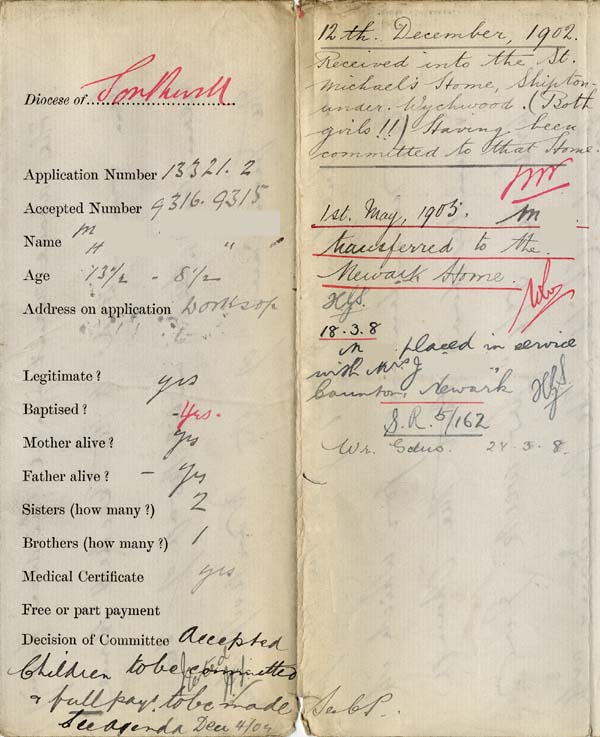 Diocese of Southwell
Application Number 13321. 2
Accepted Number 9316. 9315
Name M
H "
Age 13 1/2 - 8 1/2
Address on application Worksop
Legitimate? yes
Baptised? - Yes.
Mother alive? yes
Father alive? - yes
Sisters (how many?) 2
Brothers (how many?) 1
Medical Certificate yes
Free or part payment
Decision of Committee Accepted
Children to be committed
& full payt to be made
See agenda Dec 4/02
12th. December, 1902.
Received into the St.
Michael's Home, Shipton-
under-Wychwood. (Both
girls!!) Having been
committed to that Home.
1st. May, 1905. M
transferred to the
Newark Home.
HGS.
18.3.8
M placed in service
with Mrs J
Newark
HGS
S.R. 5/162
Wr. Gdns. 24.3.8.